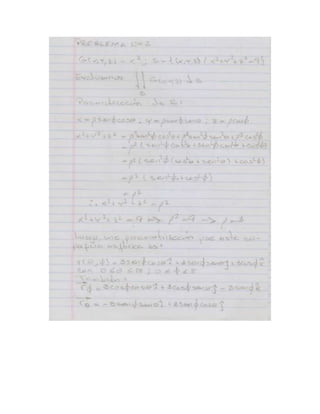 PROBLEMA Nº2
G(x,y,z) = x² ; S = {(x,y,z) / x²+y²+z²=9}
Evaluamos ∬ G(x,y,z) ds
S
Parametrización de S:
x = ρsenφcosθ ; y = ρsenφsenθ ; z = ρcosφ
x²+y²+z² = ρ²sen²φcos²θ + ρ²sen²φsen²θ + ρ²cos²φ
= ρ² (sen²φcos²θ + sen²φsen²θ + cos²φ)
= ρ² (sen²φ (cos²θ + sen²θ) + cos²φ)
= ρ² (sen²φ + cos²φ)
= ρ²
∴ x² + y² + z² = ρ²
x² + y² + z² = 9 => ρ² = 9 => ρ = 3
Luego, una parametrización para esta su-
perficie esférica es:
r(θ,φ) = 3senφcosθ î + 3senφsenθ ĵ + 3cosφ k̂
con 0 ≤ θ ≤ 2π ; 0 ≤ φ ≤ π
r⃗φ = 3cosφcosθ î + 3cosφsenθ ĵ − 3senφ k̂
r⃗θ = −3senφsenθ î + 3senφcosθ ĵ